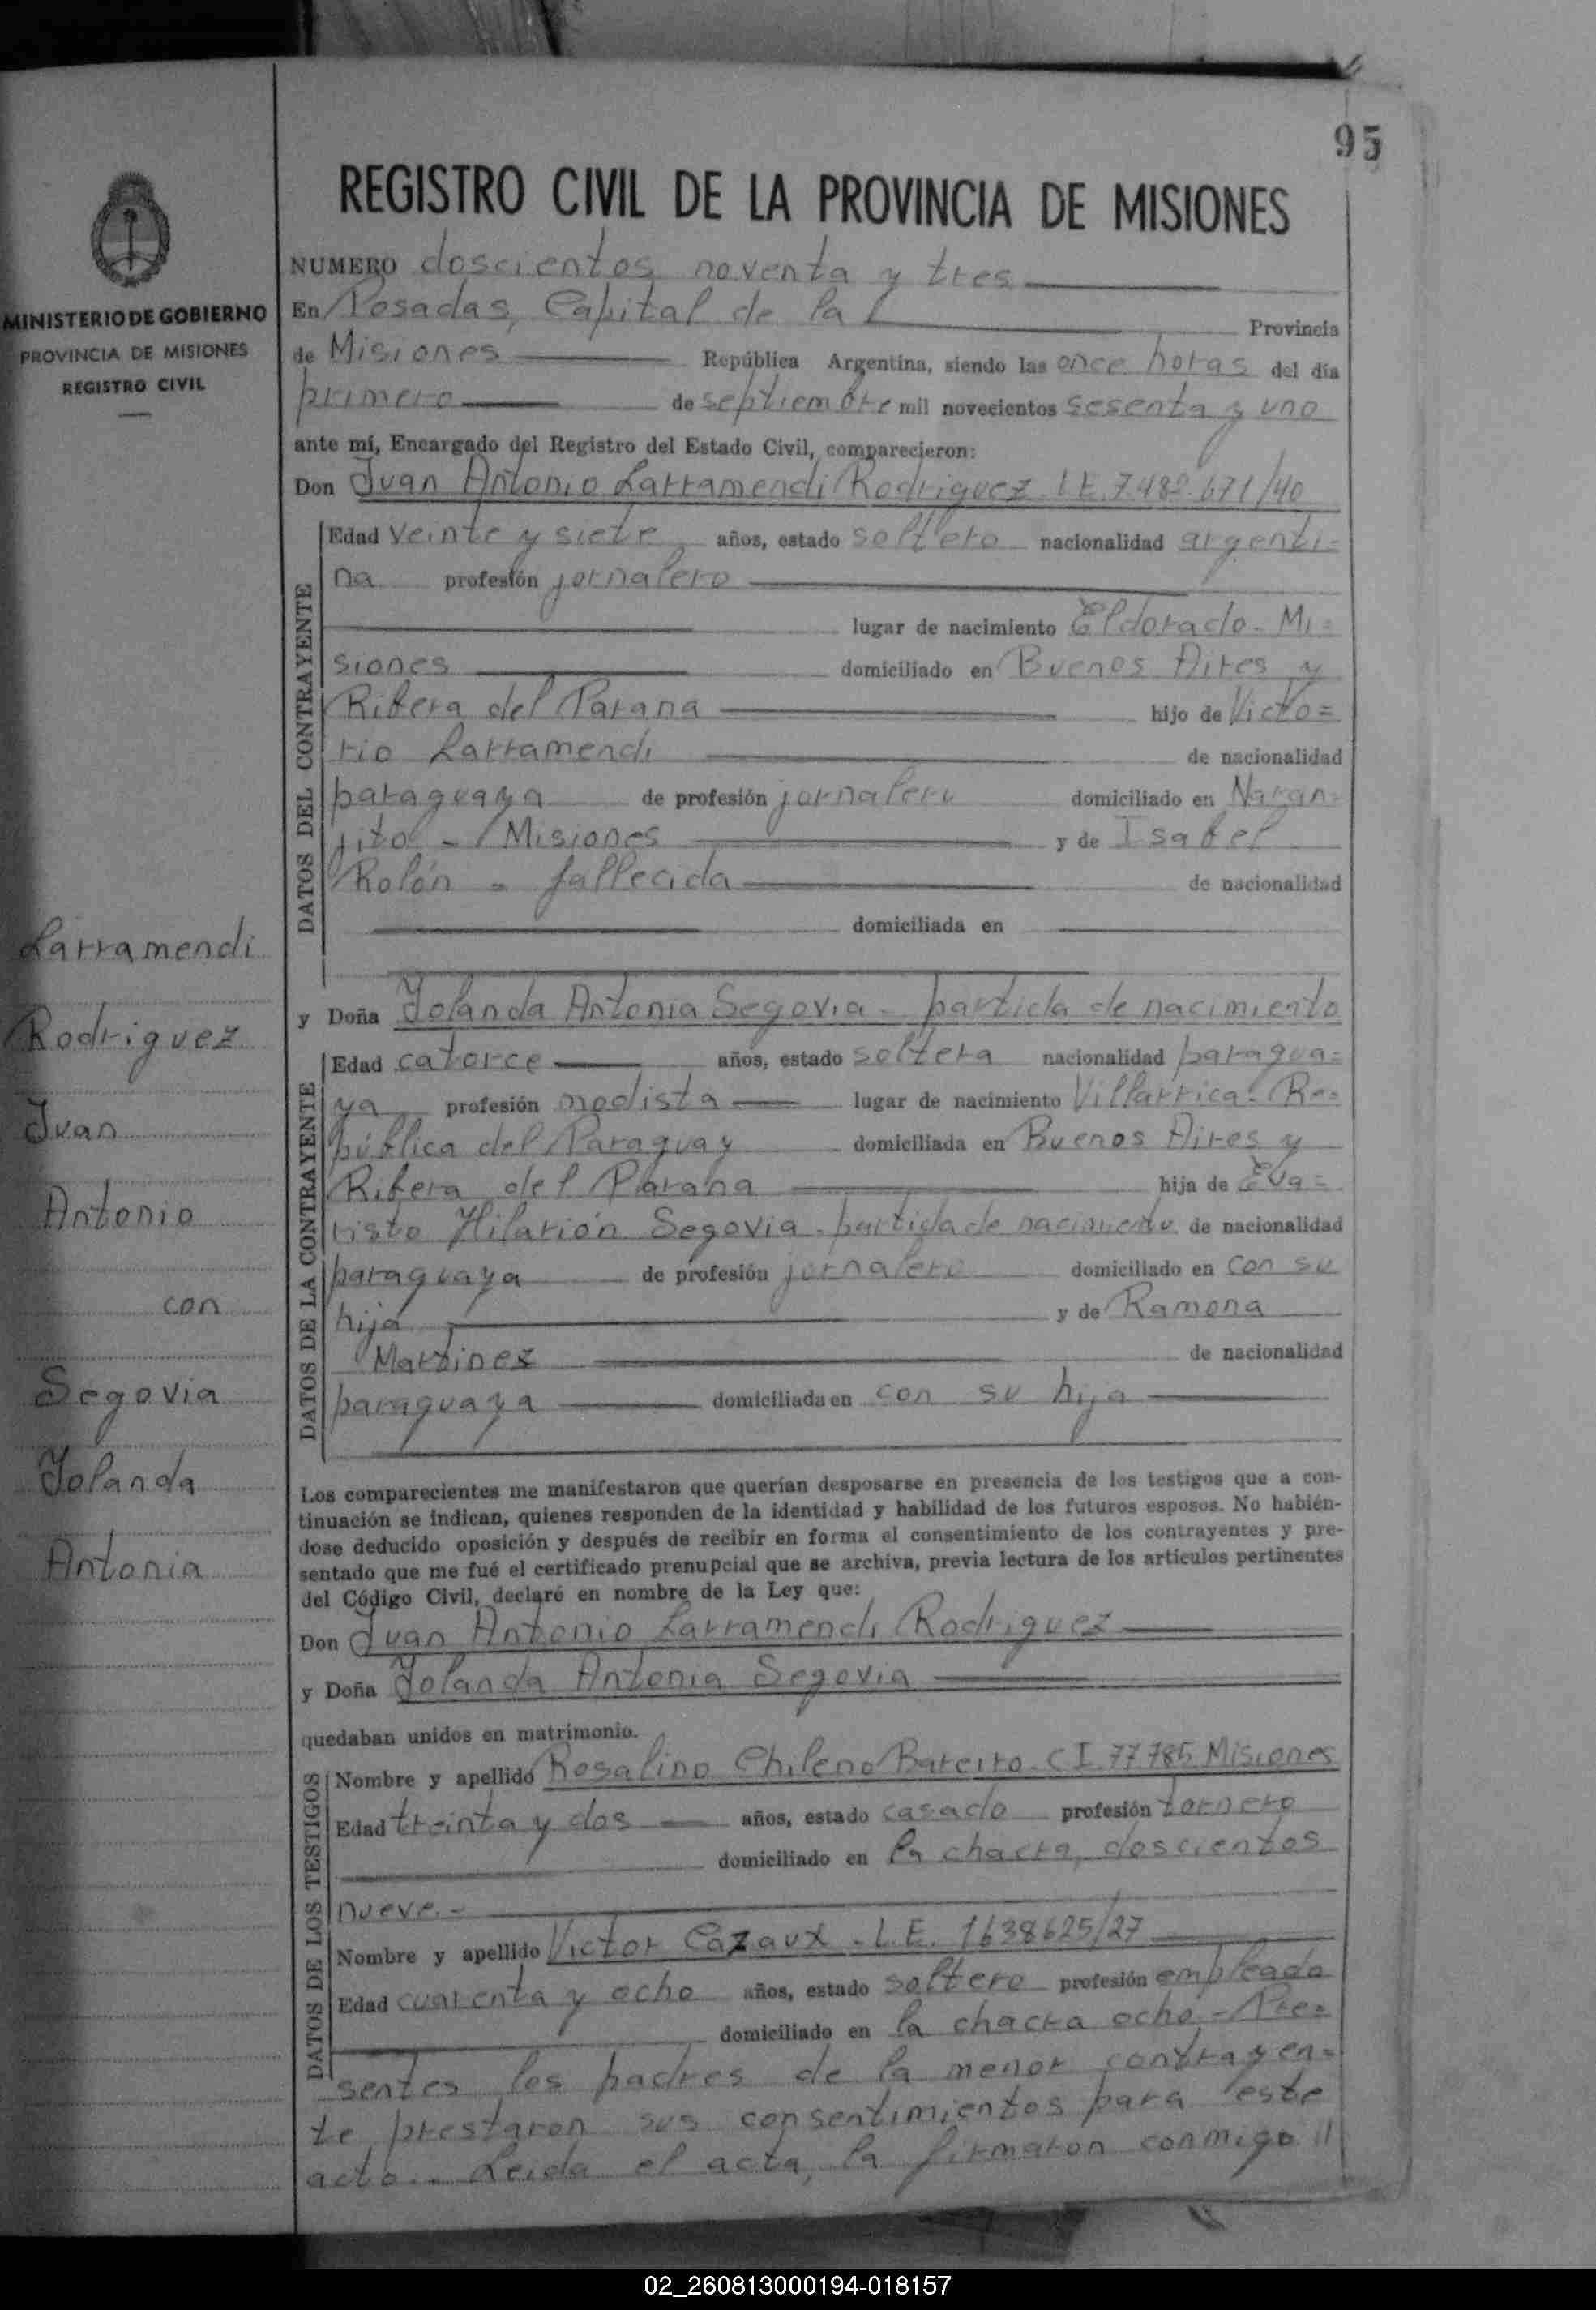 95
REGISTRO CIVIL DE LA PROVINCIA DE MISIONES
MINISTERIO DE GOBIERNO
PROVINCIA DE MISIONES
REGISTRO CIVIL
NUMERO doscientos noventa y tres
En Posadas, Capital de la Provincia
de Misiones República Argentina, siendo las once horas del día
primero de septiembre mil novecientos sesenta y uno
ante mí, Encargado del Registro del Estado Civil, comparecieron:
Don Juan Antonio Larramendi Rodriguez L E. 7.482.671/40
DATOS DEL CONTRAYENTE
Edad veinte y siete años, estado soltero nacionalidad argenti=
na profesión jornalero
lugar de nacimiento Eldorado - Mi=
siones domiciliado en Buenos Aires y
Ribera del Parana hijo de Victo=
rio Larramendi de nacionalidad
paraguaya de profesión jornalero domiciliado en Naran=
jito - Misiones y de Isabel
Rolón - fallecida de nacionalidad
domiciliada en
Larramendi
Rodriguez
Juan
Antonio
con
Segovia
Yolanda
Antonia
y Doña Yolanda Antonia Segovia - partida de nacimiento
DATOS DE LA CONTRAYENTE
Edad catorce años, estado soltera nacionalidad paragua=
ya profesión modista lugar de nacimiento Villarrica - Re=
pública del Paraguay domiciliada en Buenos Aires y
Ribera del Parana hija de Eva=
risto Hilarión Segovia - partida de nacimiento de nacionalidad
paraguaya de profesión jornalero domiciliado en con su
hija y de Ramona
Martinez de nacionalidad
paraguaya domiciliada en con su hija
Los comparecientes me manifestaron que querían desposarse en presencia de los testigos que a con-
tinuación se indican, quienes responden de la identidad y habilidad de los futuros esposos. No habién-
dose deducido oposición y después de recibir en forma el consentimiento de los contrayentes y pre-
sentado que me fué el certificado prenupcial que se archiva, previa lectura de los artículos pertinentes
del Código Civil, declaré en nombre de la Ley que:
Don Juan Antonio Larramendi Rodriguez
y Doña Yolanda Antonia Segovia
quedaban unidos en matrimonio.
DATOS DE LOS TESTIGOS
Nombre y apellido Rosalino Chileno Bareiro - C I. 77.785 Misiones
Edad treinta y dos años, estado casado profesión tornero
domiciliado en la chacra doscientos
nueve.-
Nombre y apellido Victor Cazaux - L.E. 1638625/27
Edad cuarenta y ocho años, estado soltero profesión empleado
domiciliado en la chacra ocho - Pre=
sentes los padres de la menor contrayen=
te prestaron sus consentimientos para este
acto.- Leida el acta, la firmaron conmigo //
02_260813000194-018157